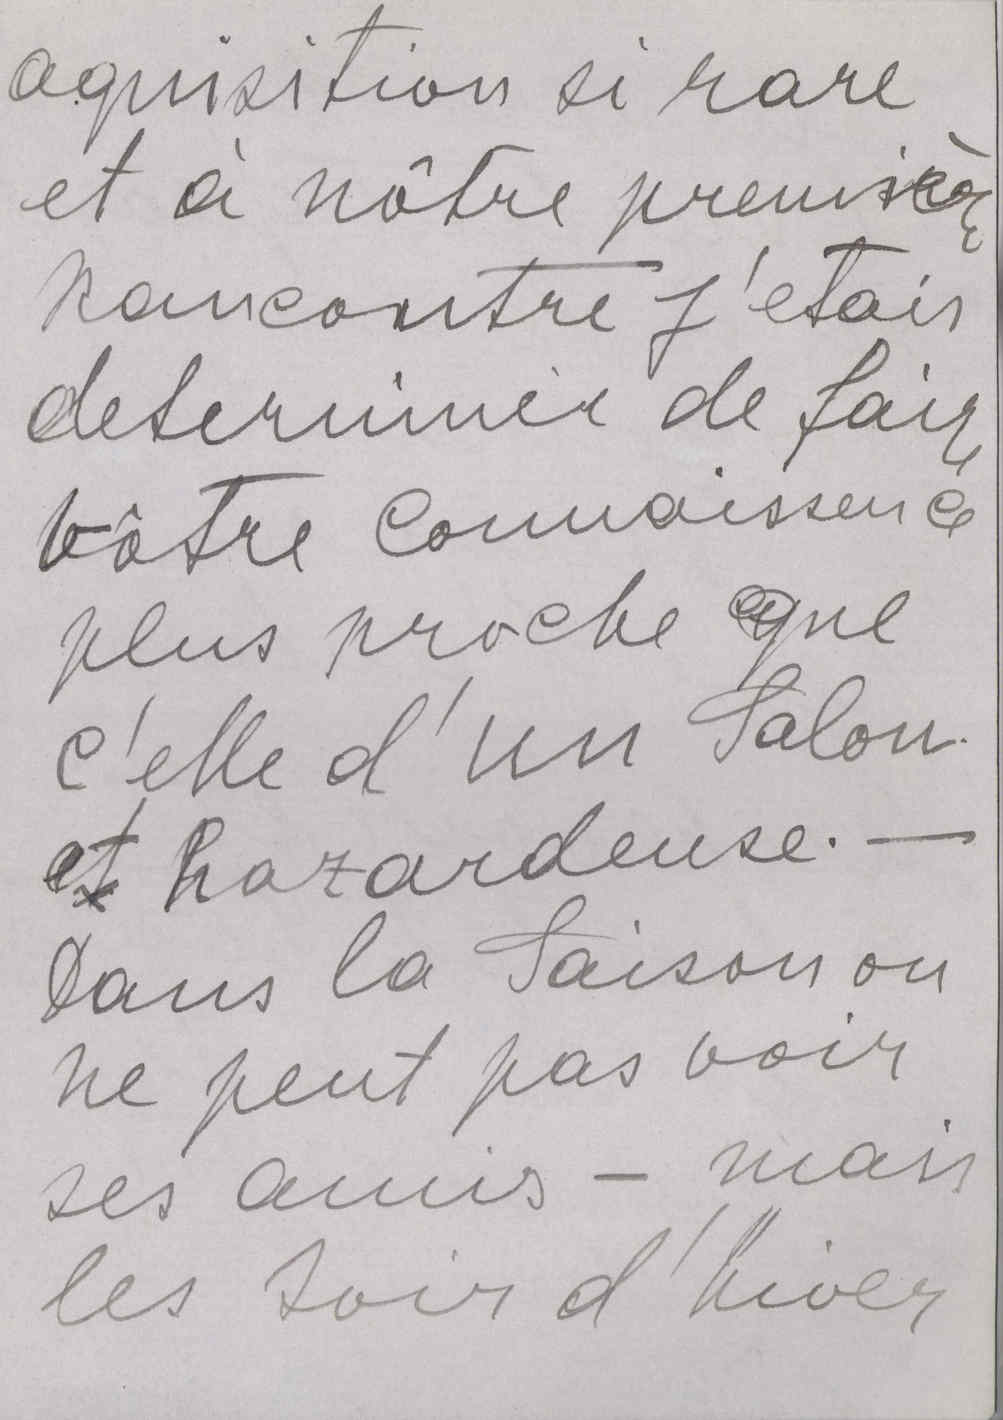 aquisition si rare
et à nôtre première
rancontre j'etais
determinér de faire
vôtre Connaissence
plus proche que
c'elle d'un Salon
et hazardeuse. —
Dans la Saison on
ne peut pas voir
ses amis — mais
les soir d'hiver